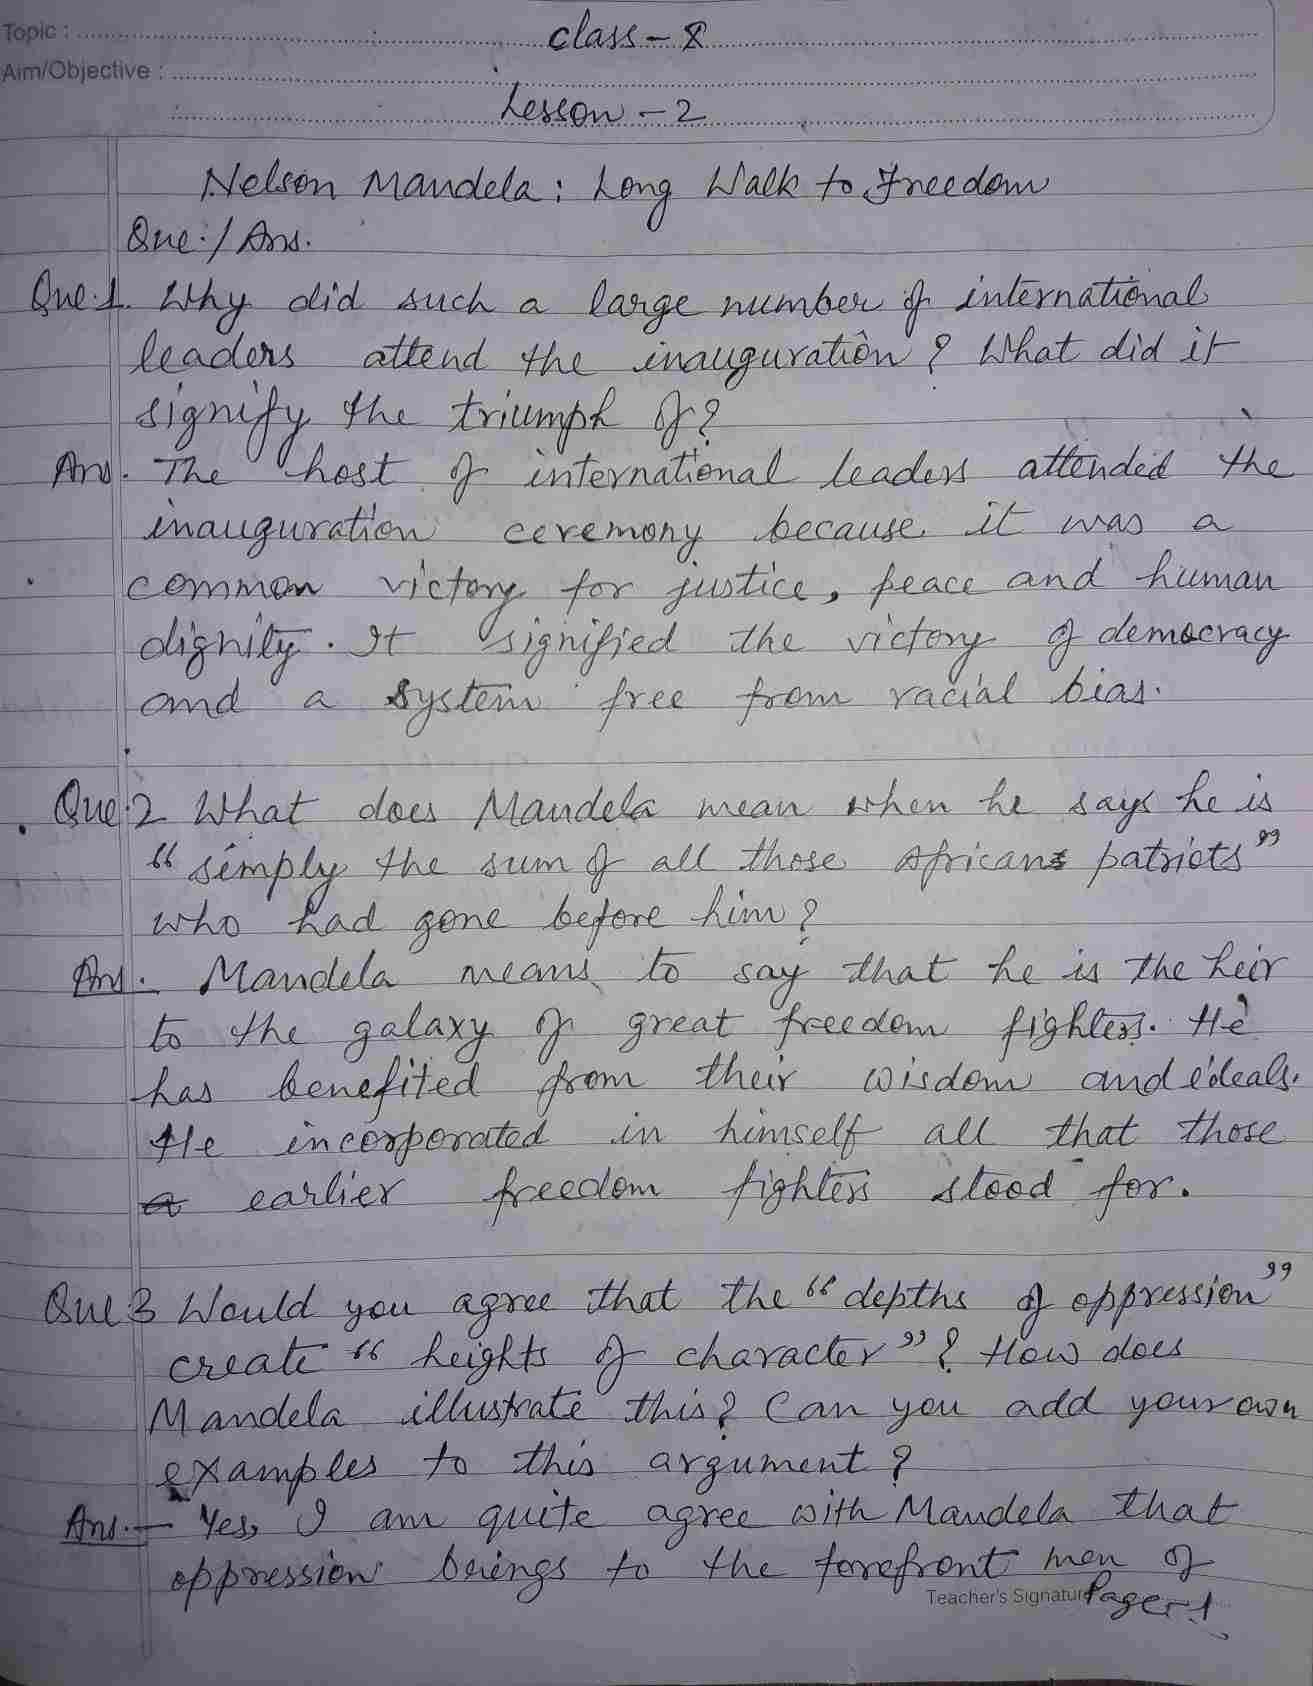 Topic : class - 8
Aim/Objective :
: Lesson - 2
Nelson Mandela: Long Walk to Freedom
Que:/Ans.
Que:1. Why did such a large number of international
leaders attend the inauguration? What did it
signify the triumph of?
Ans. The host of international leaders attended the
inauguration ceremony because it was a
common victory for justice, peace and human
dignity. It signified the victory of democracy
and a system free from racial bias.
Que:2 What does Mandela mean when he says he is
“simply the sum of all those Africans patriots”
who had gone before him?
Ans. Mandela means to say that he is the heir
to the galaxy of great freedom fighters. He
has benefited from their wisdom and ideals.
He incorporated in himself all that those
a earlier freedom fighters stood for.
Que 3 Would you agree that the “depths of oppression”
create “heights of character”? How does
Mandela illustrate this? Can you add your own
examples to this argument?
Ans.- Yes, I am quite agree with Mandela that
oppression brings to the forefront men of
Teacher's Signature Page-1